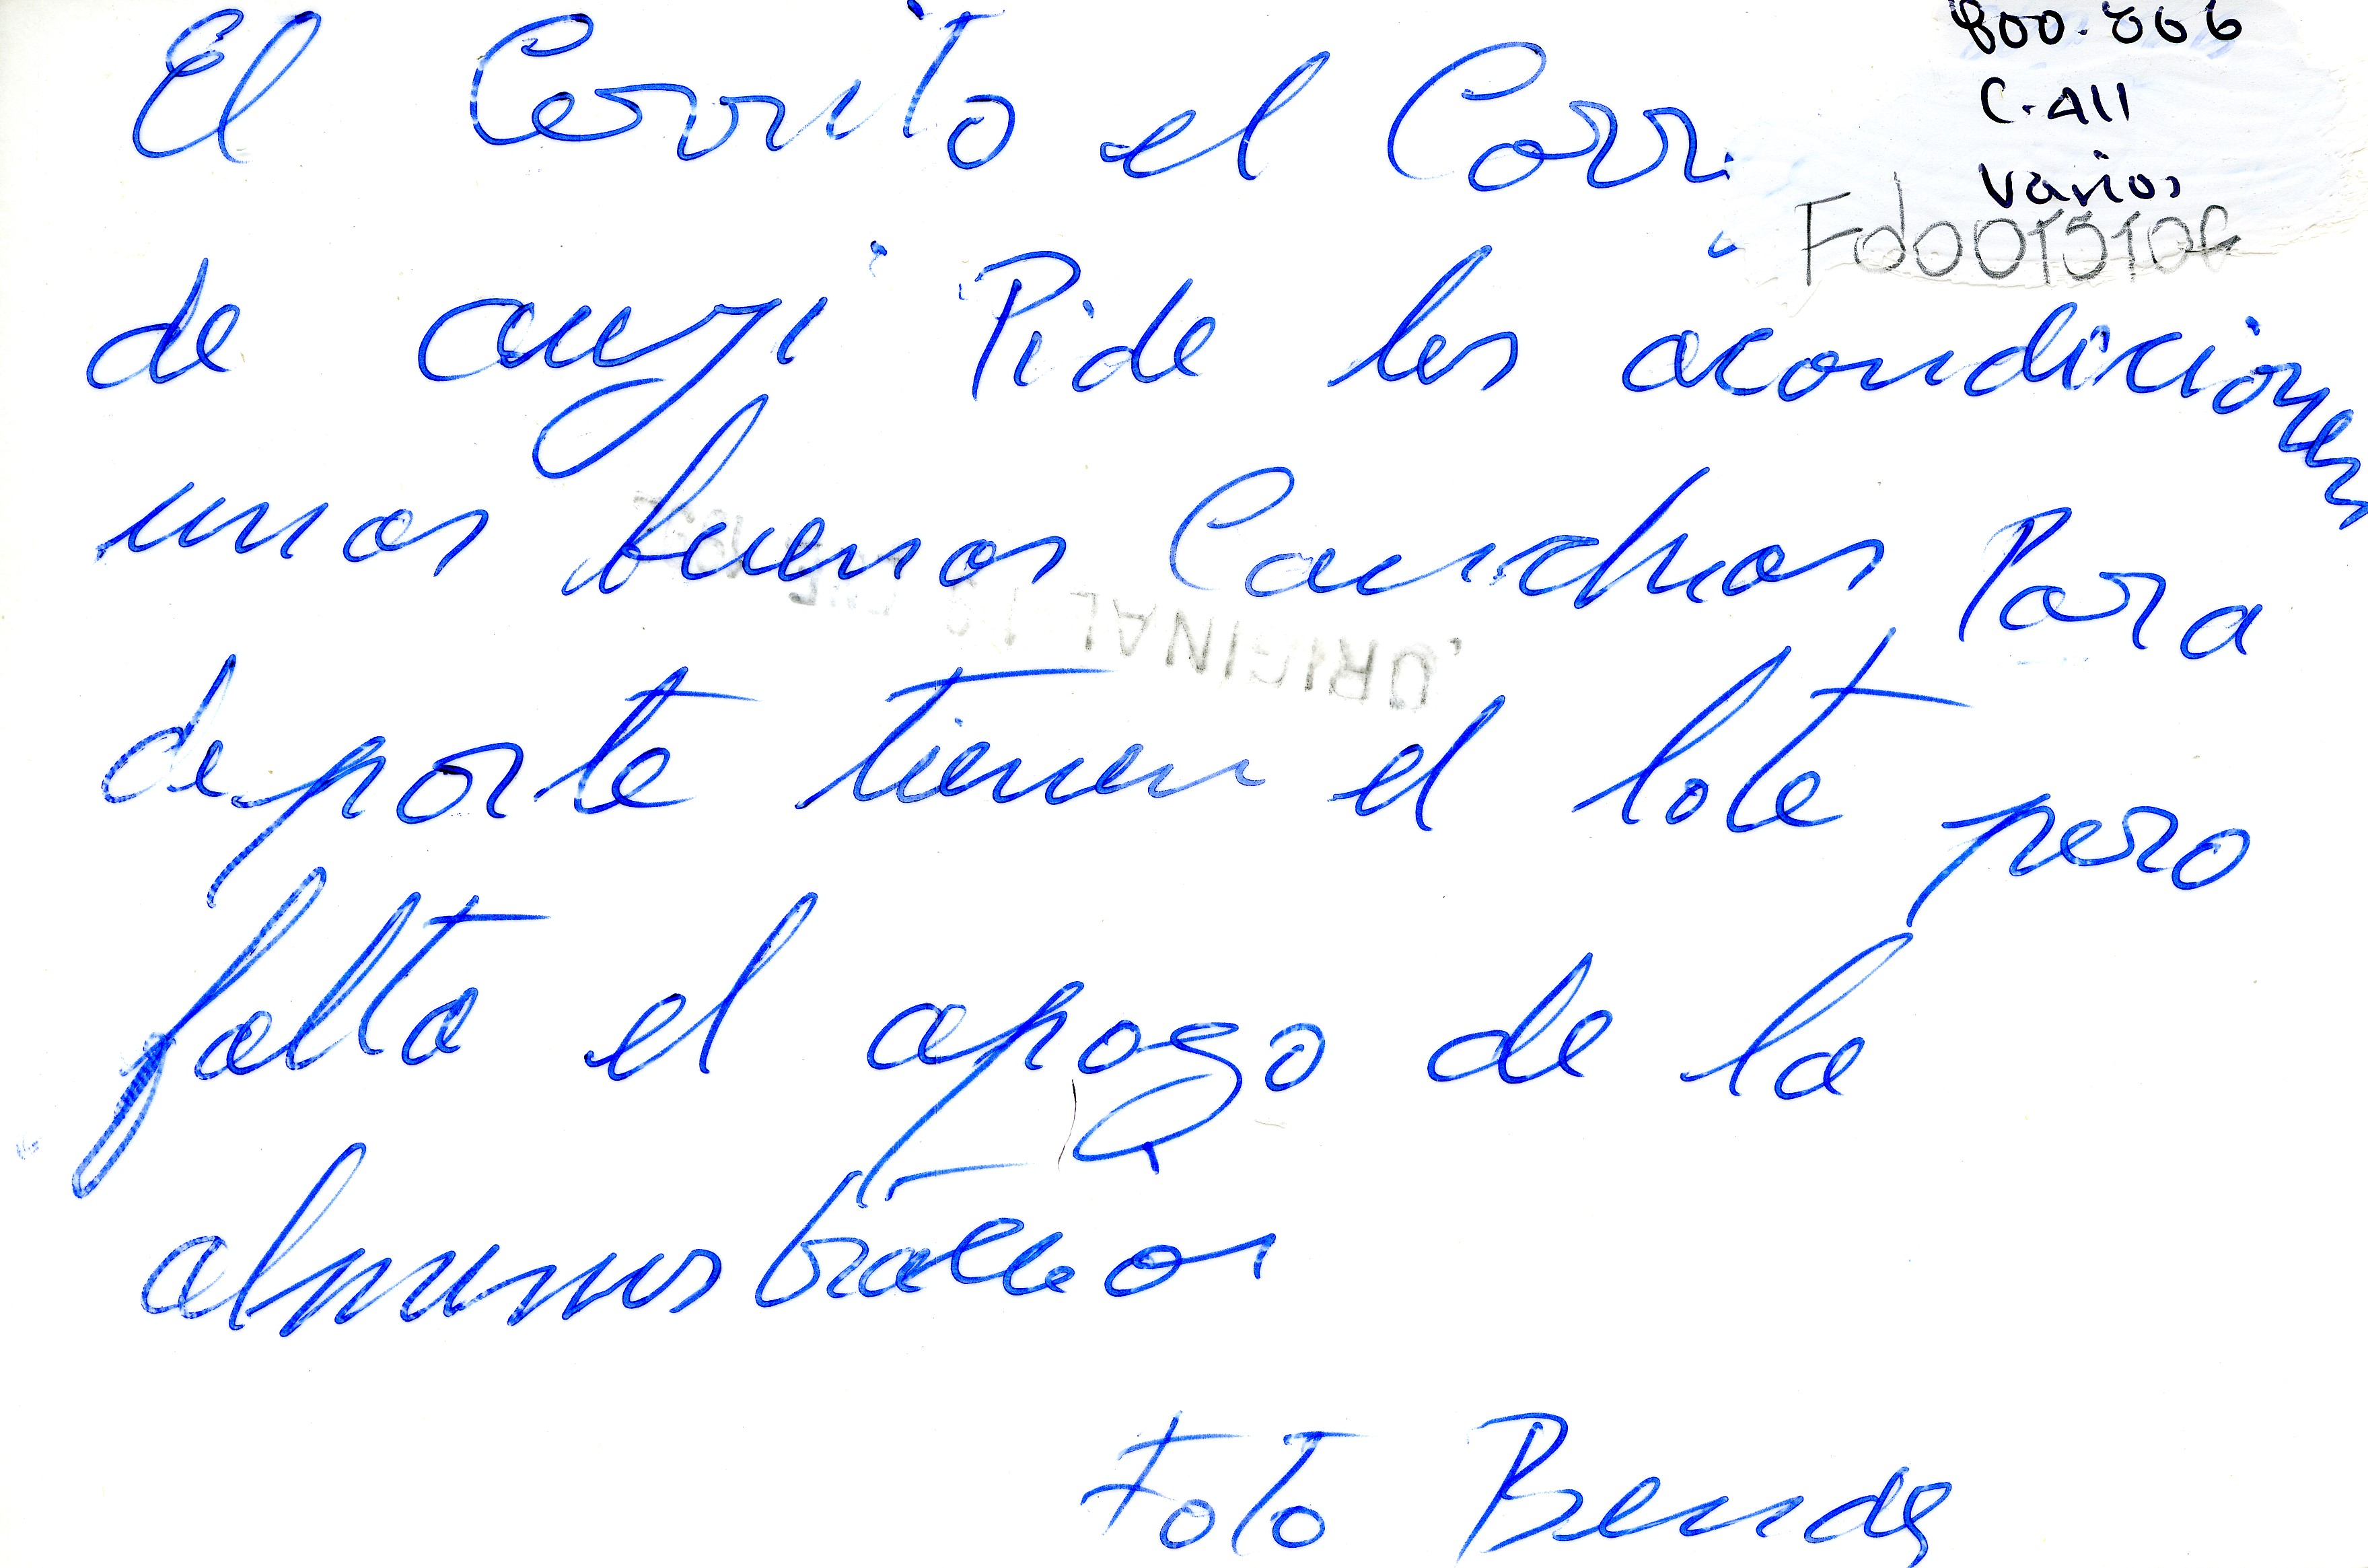 800.866
C-411
varios
Fd0015106
El Cerrito el Corri
de auyi Pide les acondicionen
unos buenos Canchas Para
deporte tienen el lote pero
falta el apogo de la
ORIGINAL
Foto Benda